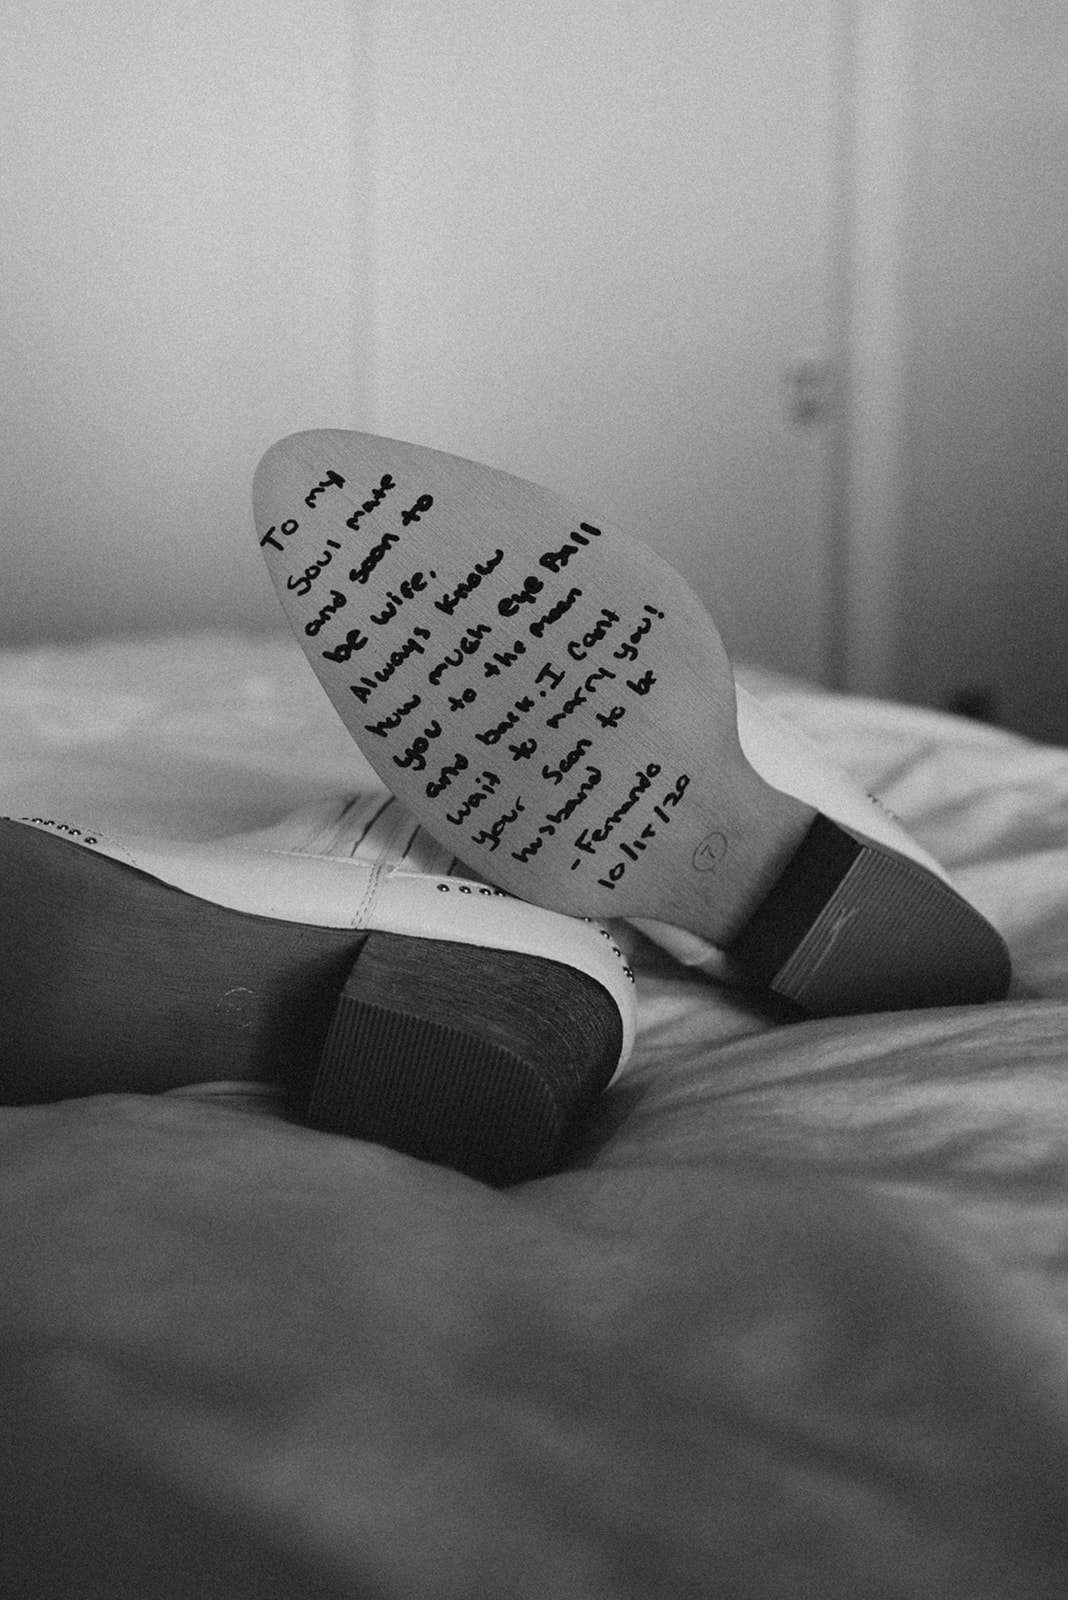 To my
Soul mate
and soon to
be wife.
Always know
how much eye Ball
you to the moon
and back. I Cant
wait to marry you!
your soon to be
husband
-Fernando
10/15/20
7